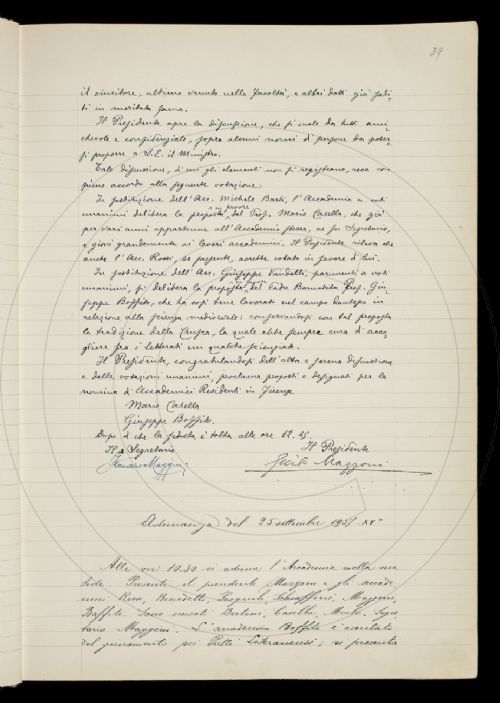 39
il vincitore, ultimo venuto nella Facoltà, e altri dotti già sali-
ti in meritata fama.
Il Presidente apre la discussione, che si vuole da tutti ami-
chevole e confidenziale, sopra alcuni nomi di persone da poter-
si proporre a S.E. il Ministro.
Tale discussione, di cui gli elementi non si registrano, reca co-
mune accordo alla seguente votazione:
In sostituzione dell'Acc. Michele Barbi, l'Accademia a voti
unanimi delibera la proposta in favore del Prof. Mario Casella, che già
per vari anni appartenne all'Accademia stessa, ne fu Segretario,
e giovò grandemente ai lavori accademici. Il Presidente rileva che
anche l'Acc. Rossi, se presente, avrebbe votato in favore di lui.
In sostituzione dell'Acc. Giuseppe Vandelli, parimenti a voti
unanimi, si delibera la proposta del Padre Barnabita Prof. Giu-
seppe Boffito, che ha così bene lavorato nel campo dantesco in
relazione alla scienza medioevale: conservandosi con tal proposta
la tradizione della Crusca, la quale ebbe sempre cura d'acco-
gliere fra i letterati un qualche scienziato.
Il Presidente, congratulandosi dell'alta e serena discussione
e delle votazioni unanimi, proclama proposti e designati per la
nomina di Accademici Residenti in Firenze
Mario Casella
Giuseppe Boffito.
Dopo di che la seduta è tolta alle ore 12.25.
Il Segretario
Il Presidente
Guido Mazzoni
Adunanza del 25 settembre 1937 XV°
Alle ore 10.30 si aduna l'Accademia nella sua
sede. Presenti il presidente Mazzoni e gli accade-
mici Rossi, Benedetti, Pasquali, Schiaffini, Maggini,
Boffito. Sono scusati Bertoni, Casella, Segre-
tario Maggini. L'accademico Boffito è esentato
dal giuramento pei Patti Lateranensi; si presenta